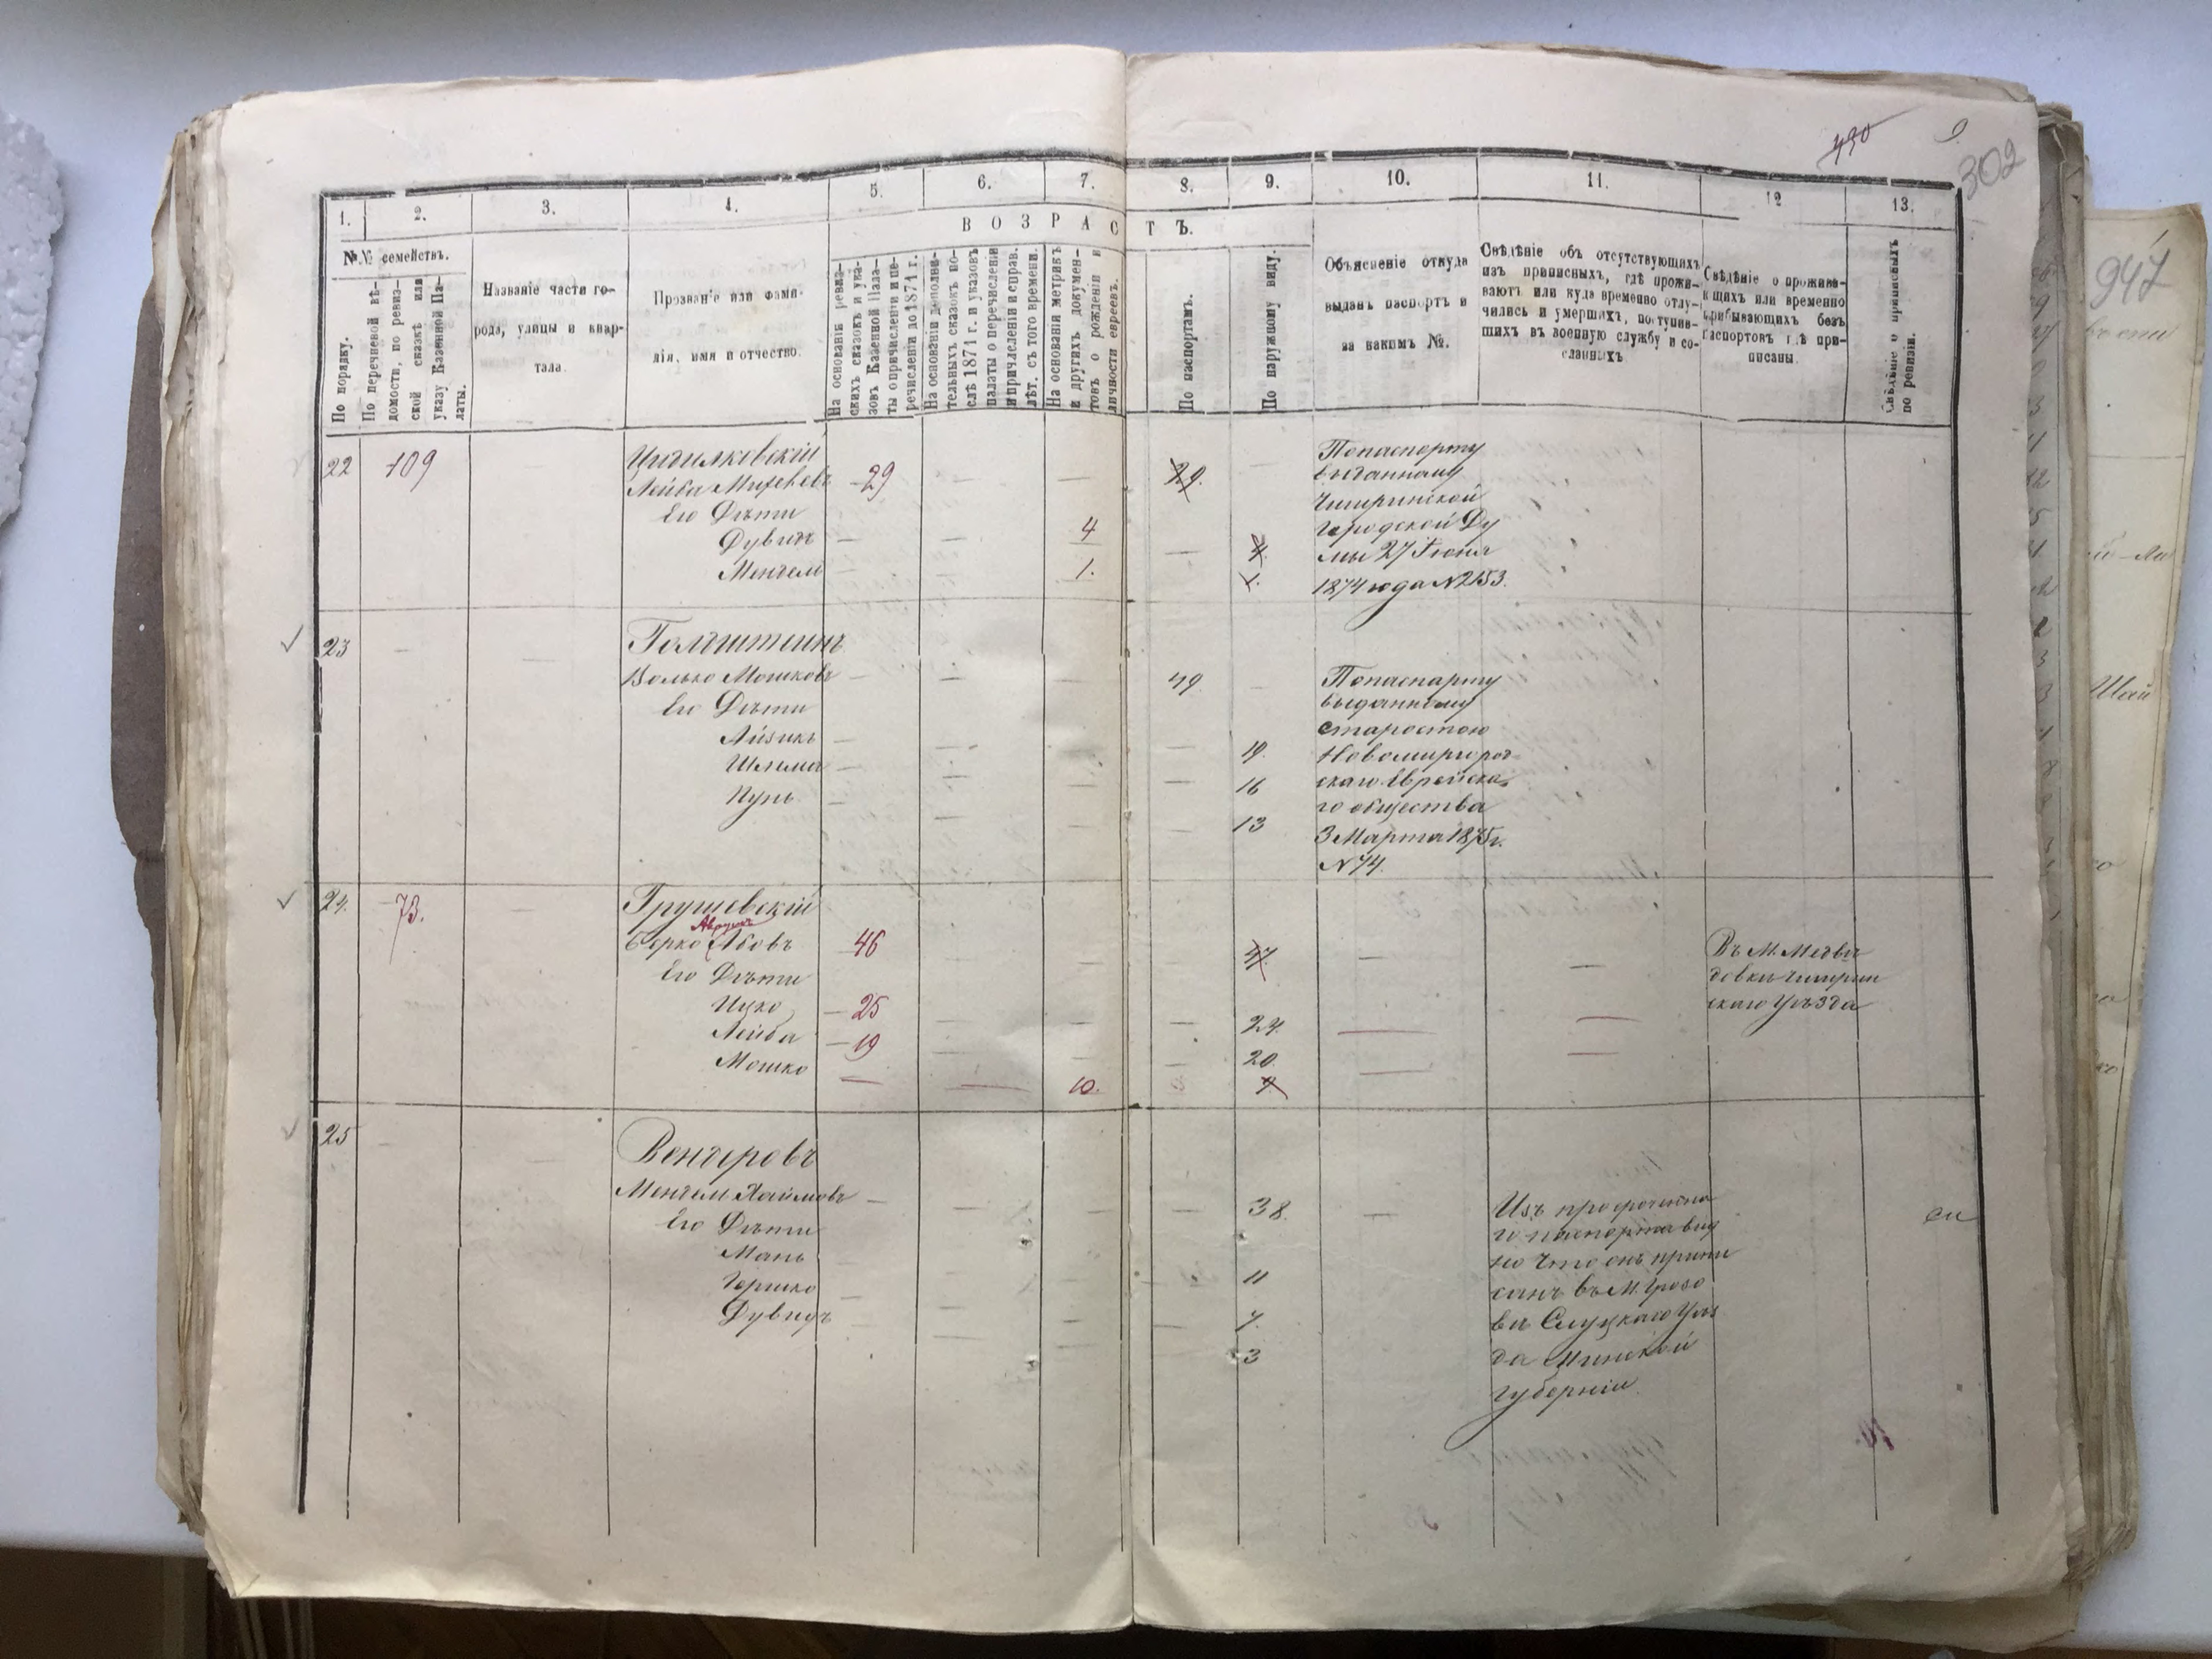 430
302
1.
2.
3.
4.
5.
6.
7.
8.
9.
10.
11.
12
13.
ВОЗРАСТЪ.
№№ семействъ.
По порядку.
По перечневой вѣ-
домости, по ревиз-
ской сказкѣ или
указу Казенной Па-
латы.
Названіе части го-
рода, улицы и квар-
тала.
Прозваніе или фами-
лія, имя и отчество.
На основаніи ревиз-
скихъ сказокъ и ука-
зовъ Казенной Пала-
ты о причисленіи и пе-
речисленіи до 1871 г.
На основаніи дополни-
тельныхъ сказокъ по-
слѣ 1871 г. и указовъ
палаты о перечисленіи
и причисленіи и справ.
лѣт. съ того времени.
На основаніи метрикъ
и другихъ докумен-
товъ о рожденіи и
личности евреевъ.
По паспортамъ.
По наружному виду.
Объясненіе откуда
выданъ паспортъ и
за какимъ №.
Свѣдѣніе объ отсутствующихъ
изъ приписныхъ, гдѣ прожи-
ваютъ или куда временно отлу-
чились и умершихъ, поступив-
шихъ въ военную службу и со-
сланныхъ.
Свѣдѣніе о прожива-
ющихъ или временно
прибывающихъ безъ
паспортовъ гдѣ при-
писаны.
Свѣдѣніе о приписныхъ
по ревизіи.
22 109
Лейба 29 29.
Его Дѣти
Дувидъ 4 4.
Мендель 1. 1.
Попаспорту
выданному
Чигиринской
городской Ду
мы 27 Іюня
1874 года N2153.
23
Гольштеинъ
Волько Мошковъ 49
Его Дѣти
Айзикъ 19.
Шльма 16
Нунь 13
Попаспарту
выданному
старостою
Новомиргород-
скаго Еврейска-
го общества
3 Марта 1875 г.
N 74.
24. 73.
Грушевскій
Аврумъ
Берко Абовъ 46 47.
Его Дѣти
Ицко 25 24.
Лейба 19 20
Мошко 10. 9
Въ М. Медвѣ
довки Чигирин
скаго Уѣзда
25
Вендеровъ
Мендель Хаимовъ 38.
Его Дѣти
Мань 11
Гершко 7.
Дувидъ 3
Изъ просроченна
го паспорта вид
но что онъ припи
санъ въ М. Грозо
вѣ Слуцкаго Уѣз
да Минской
губерніи
947
Шай